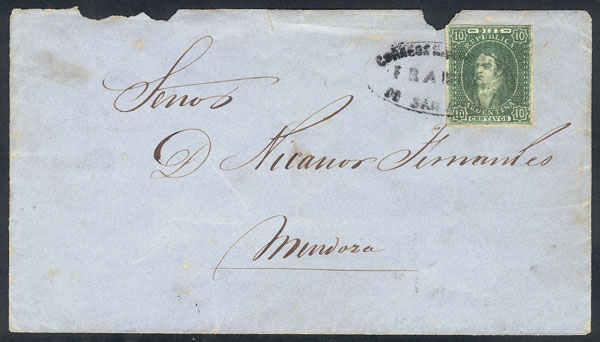 10 DIEZ 10
REPUBLICA
ARGENTINA
10 CENTAVOS 10
CORREOS
FRAN
DE SAN
Señor
D Nicanor Fernandes
Mendoza